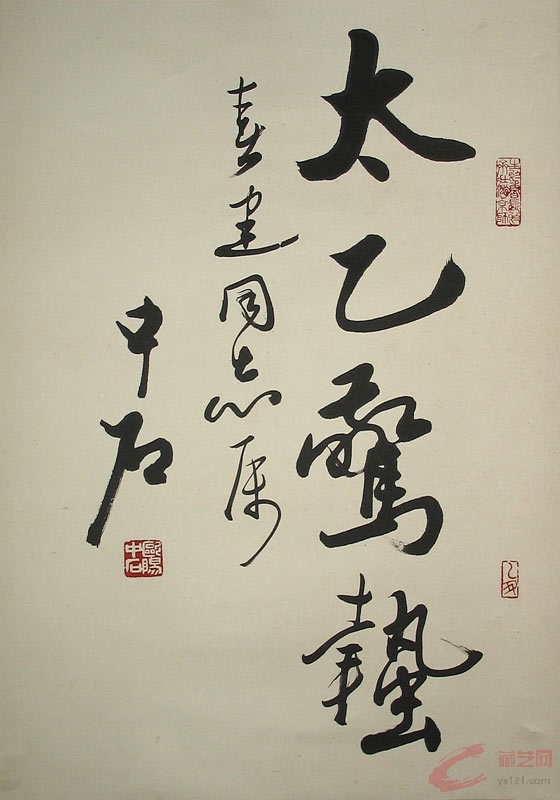 太乙驚蟄
喜建同志属
中石
歐陽中石
藏艺网
ys121.com